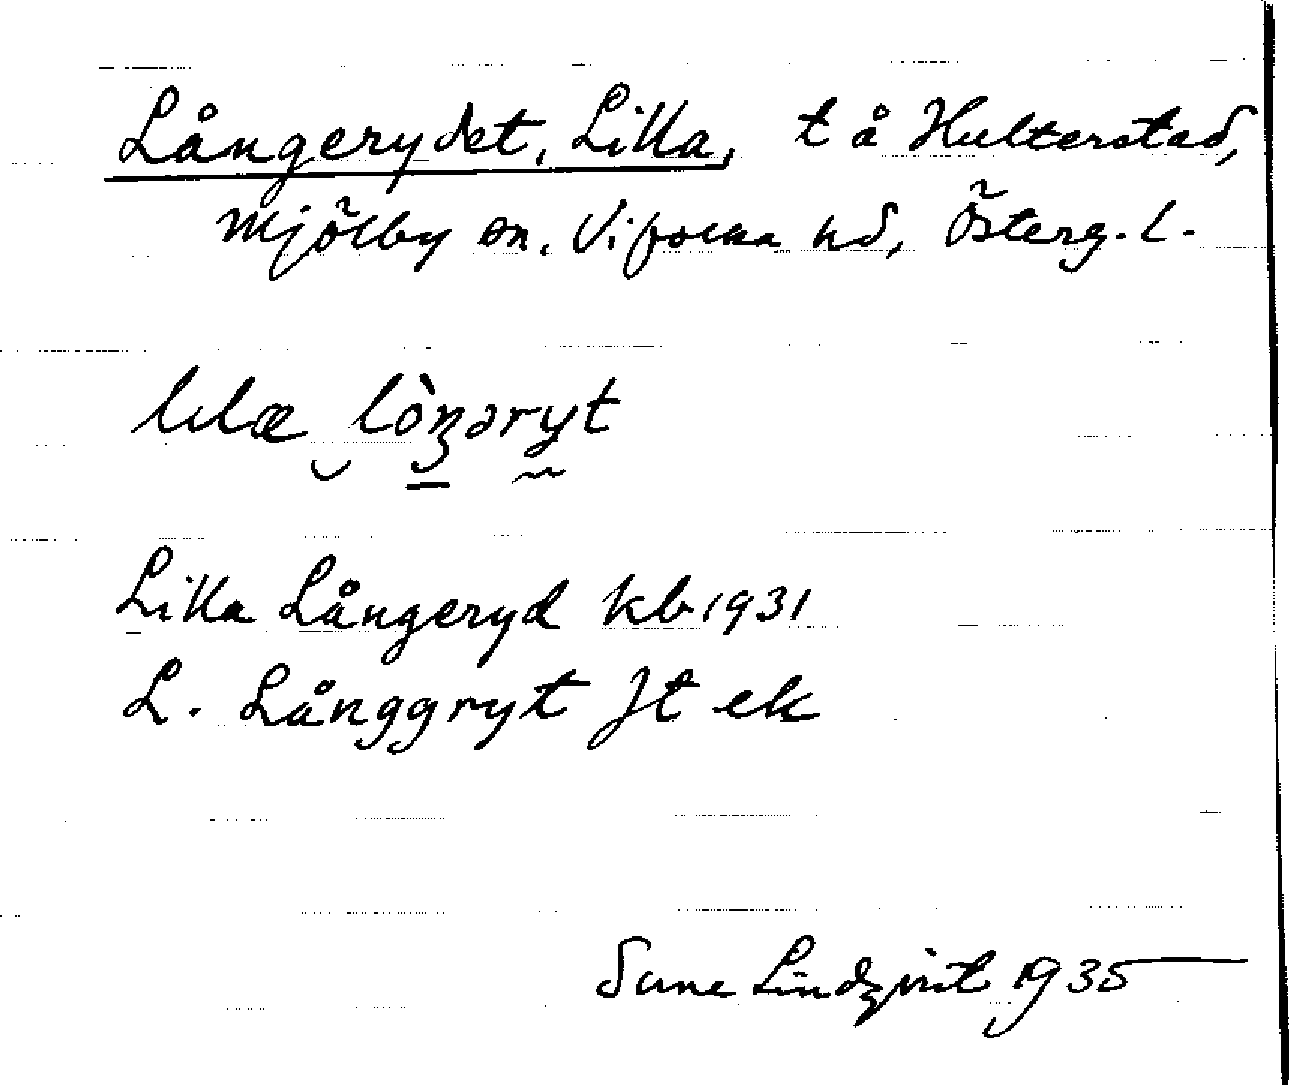 Långerydet, Lilla, t å Hulterstad,
Mjölby sn, Vifolka hd, Österg. l.
lilæ lòŋəryt
Lilla Långeryd kb 1931
L. Långgryt Jt ek
Sune Lindqvist 1935